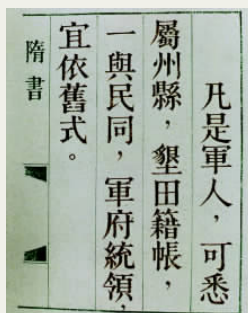 凡是軍人，可悉
屬州縣，墾田籍帳，
一與民同，軍府統領，
宜依舊式。
隋書